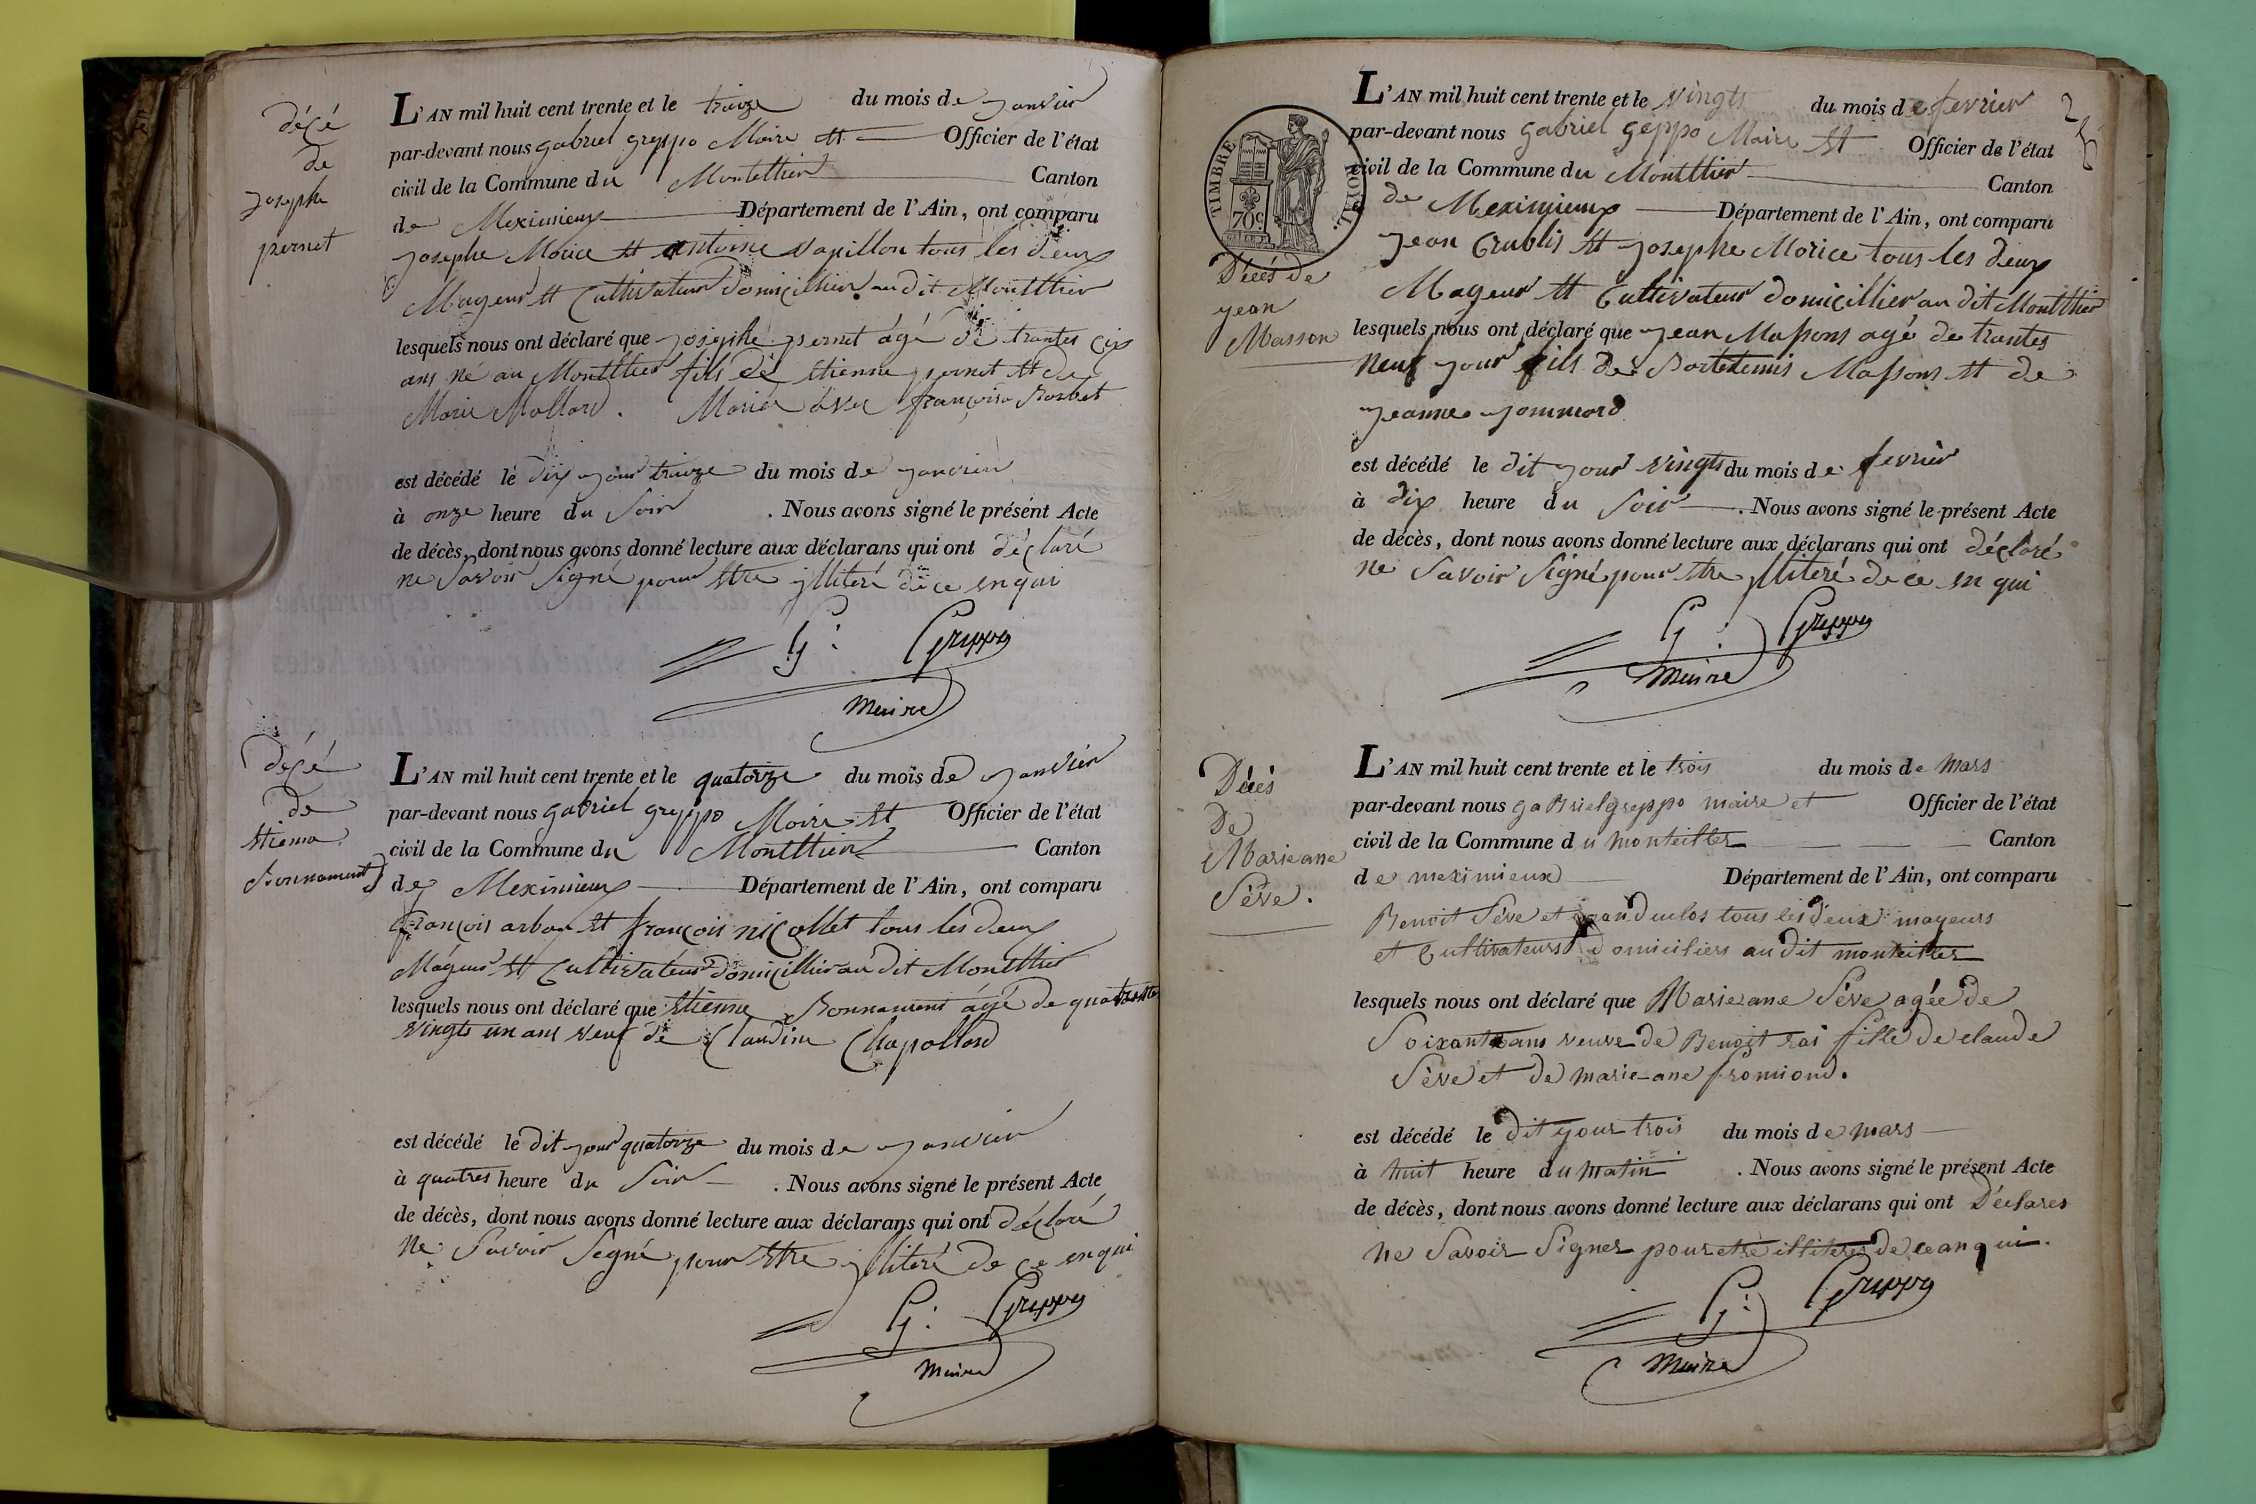 décé
de
josephe
pernet
L'AN mil huit cent trente et le treize du mois de janvier
par-devant nous gabriel greppo Maire et Officier de l'état
civil de la Commune du Montellier Canton
de Meximieux Département de l'Ain, ont comparu
josephe Morice et antoine vapillon tous les deux
Mageur et Cultivateur domicillier au dit Montellier
lesquels nous ont déclaré que josephe pernet âgé de trantes cix
ans né au Montellier fils de Etienne pernet et de
Marie Mollard. Marier avec françoise
est décédé le dix jour treize du mois de janvier
à onze heure du Soir. Nous avons signé le présent Acte
de décès, dont nous avons donné lecture aux déclarans qui ont déclaré
ne Savoir Signé pour Etre illiteré de ce enqui
G: Greppo
Maire
décé
de
Etienne
Bonnament
L'AN mil huit cent trente et le quatorze du mois de janvier
par-devant nous gabriel greppo Maire et Officier de l'état
civil de la Commune du Montellier Canton
de Meximieux Département de l'Ain, ont comparu
françois arban et françois nicollet tous les deux
Mageur et Cultivateur domicillier au dit Montellier
lesquels nous ont déclaré que Etienne Bonnament âgé de quatre
vingts un ans veuf de Claudine Chapolland
est décédé le dit jour quatorze du mois de janvier
à quatres heure du Soir. Nous avons signé le présent Acte
de décès, dont nous avons donné lecture aux déclarans qui ont déclaré
ne Savoir Segné pour Etre illiteré de ce enqui
G: Greppo
Maire
25
TIMBRE ROYAL
70c.
Décés de
jean
Masson
L'AN mil huit cent trente et le vingts du mois de fevrier
par-devant nous gabriel geppo Maire et Officier de l'état
civil de la Commune du Montellier Canton
de Meximieux Département de l'Ain, ont comparu
jean Crublis et josephe Morice tous les deux
Mageur et Cultivateur domicillier au dit Montellier
lesquels nous ont déclaré que jean Massons agé de trantes
neuf jour fils de Massons et de
jeanne jommard
est décédé le dit jour vingts du mois de fevrier
à dix heure du Soir. Nous avons signé le présent Acte
de décès, dont nous avons donné lecture aux déclarans qui ont déclaré
ne Savoir Signé pour Etre illiteré de ce en qui
G: Greppo
Maire
Décès
De
Marie ane
Sève.
L'AN mil huit cent trente et le trois du mois de mars
par-devant nous gaBriel greppo maire et Officier de l'état
civil de la Commune du monteiller Canton
de meximieux Département de l'Ain, ont comparu
Benoit Sève et jean duclos tous les deux mageurs
et Cultivateurs domiciliers au dit monteiller
lesquels nous ont déclaré que Marie ane Sève agée de
Soixante ans veuve de Benoit rai fille de claude
Sève et de marie-ane fromiond.
est décédé le dit jour trois du mois de mars
à huit heure du matin. Nous avons signé le présent Acte
de décès, dont nous avons donné lecture aux déclarans qui ont Déclares
ne Savoir Signer pour etre illiteres de ce an qui.
G: Greppo
Maire